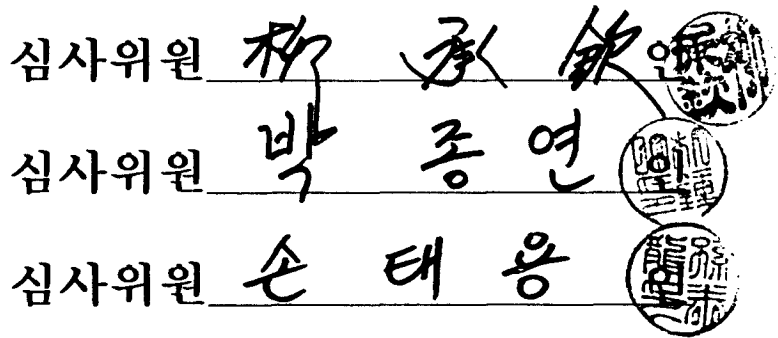 심사위원 柳 承 欽 인
심사위원 박 종 연 인
심사위원 손 태 용 인